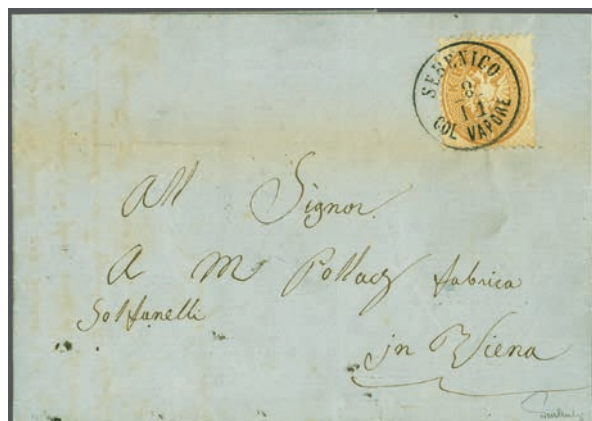 SEBENICO
8
11
COL VAPORE
All Signor
A M Pollack fabrica
Solfanelli
in Viena